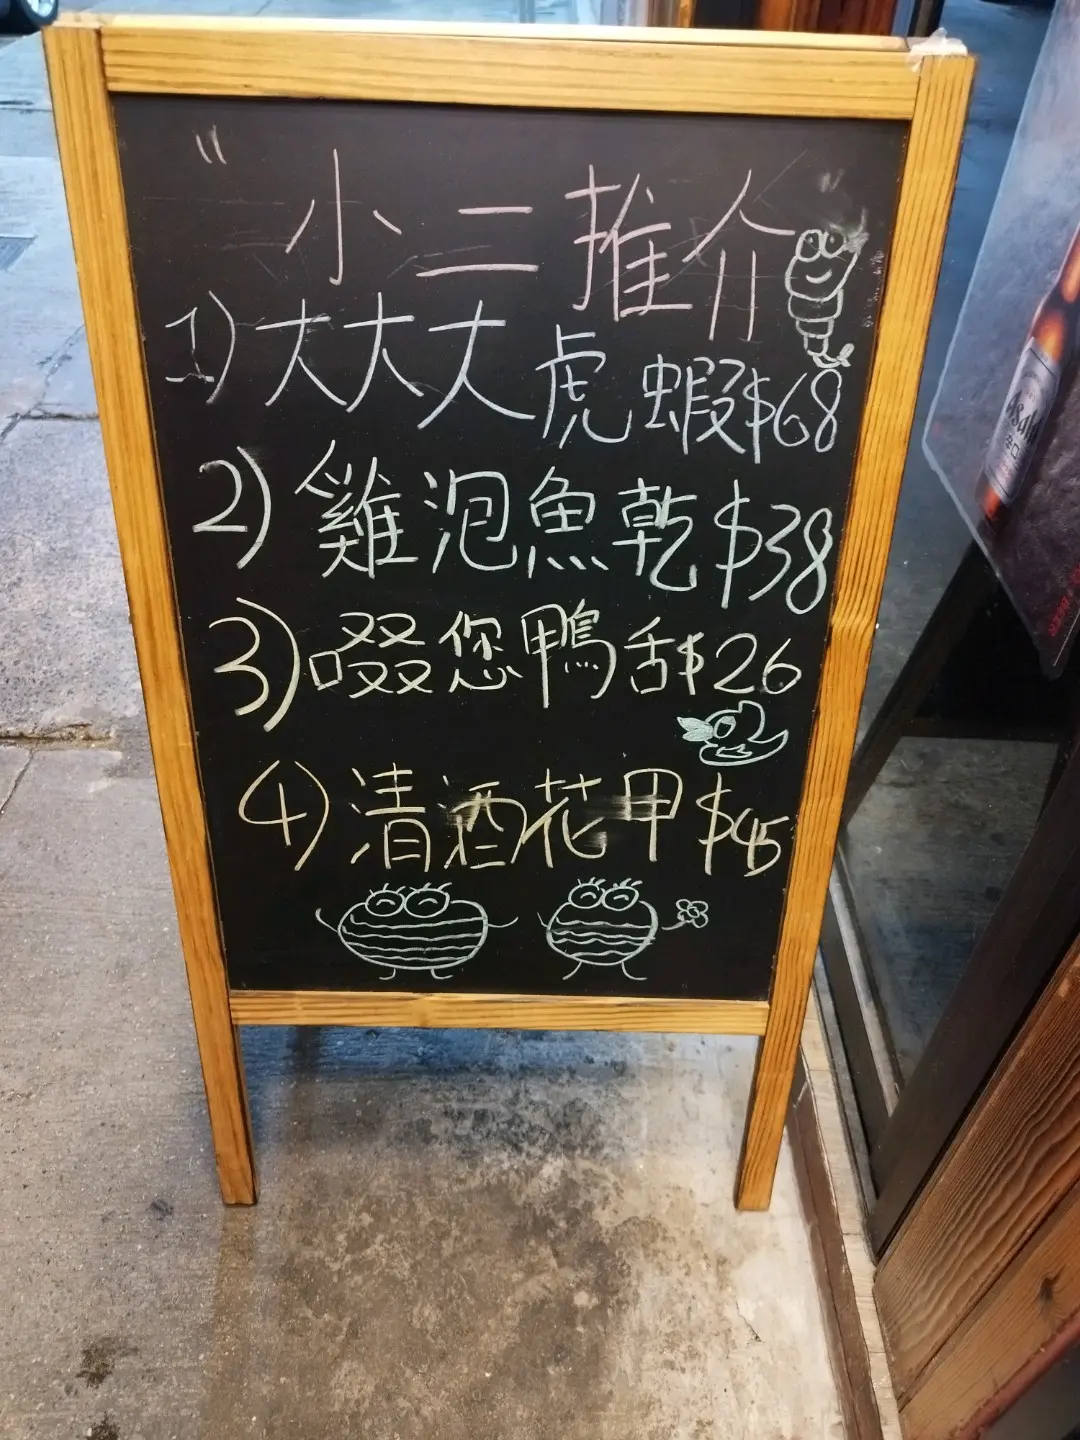 "小二推介
1) 大大大虎蝦$68
2) 雞泡魚乾$38
3) 啜您鴨舌$26
4) 清酒花甲$45
Asahi